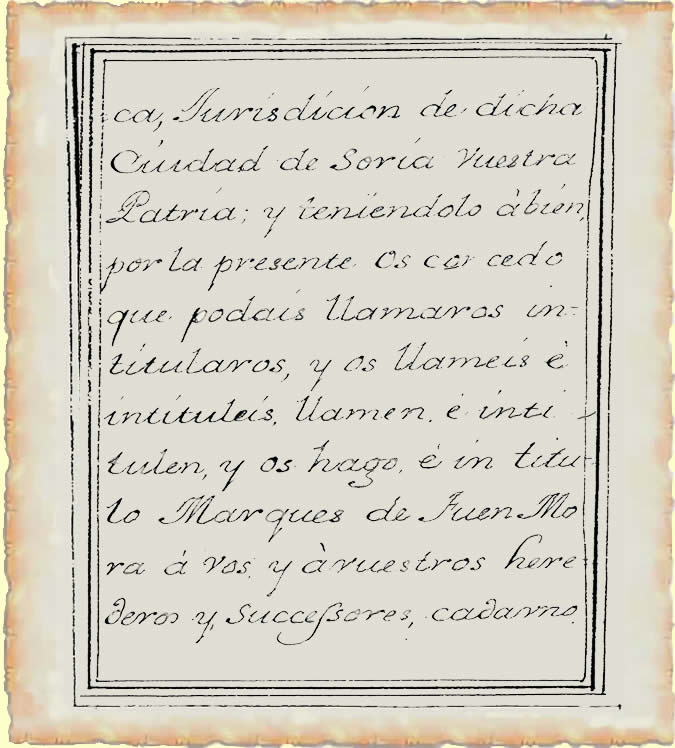 ca, Jurisdicion de dicha
Ciudad de Soria vuestra
Patria; y teniendolo àbien,
por la presente Os con cedo
que podais llamaros in-
titularos, y os llameis è
intituleis, llamen, è inti-
tulen, y os hago, è in titu-
lo Marques de Fuen Mo
ra á vos, y àvuestros here-
deros y, Succeſsores, cadavno